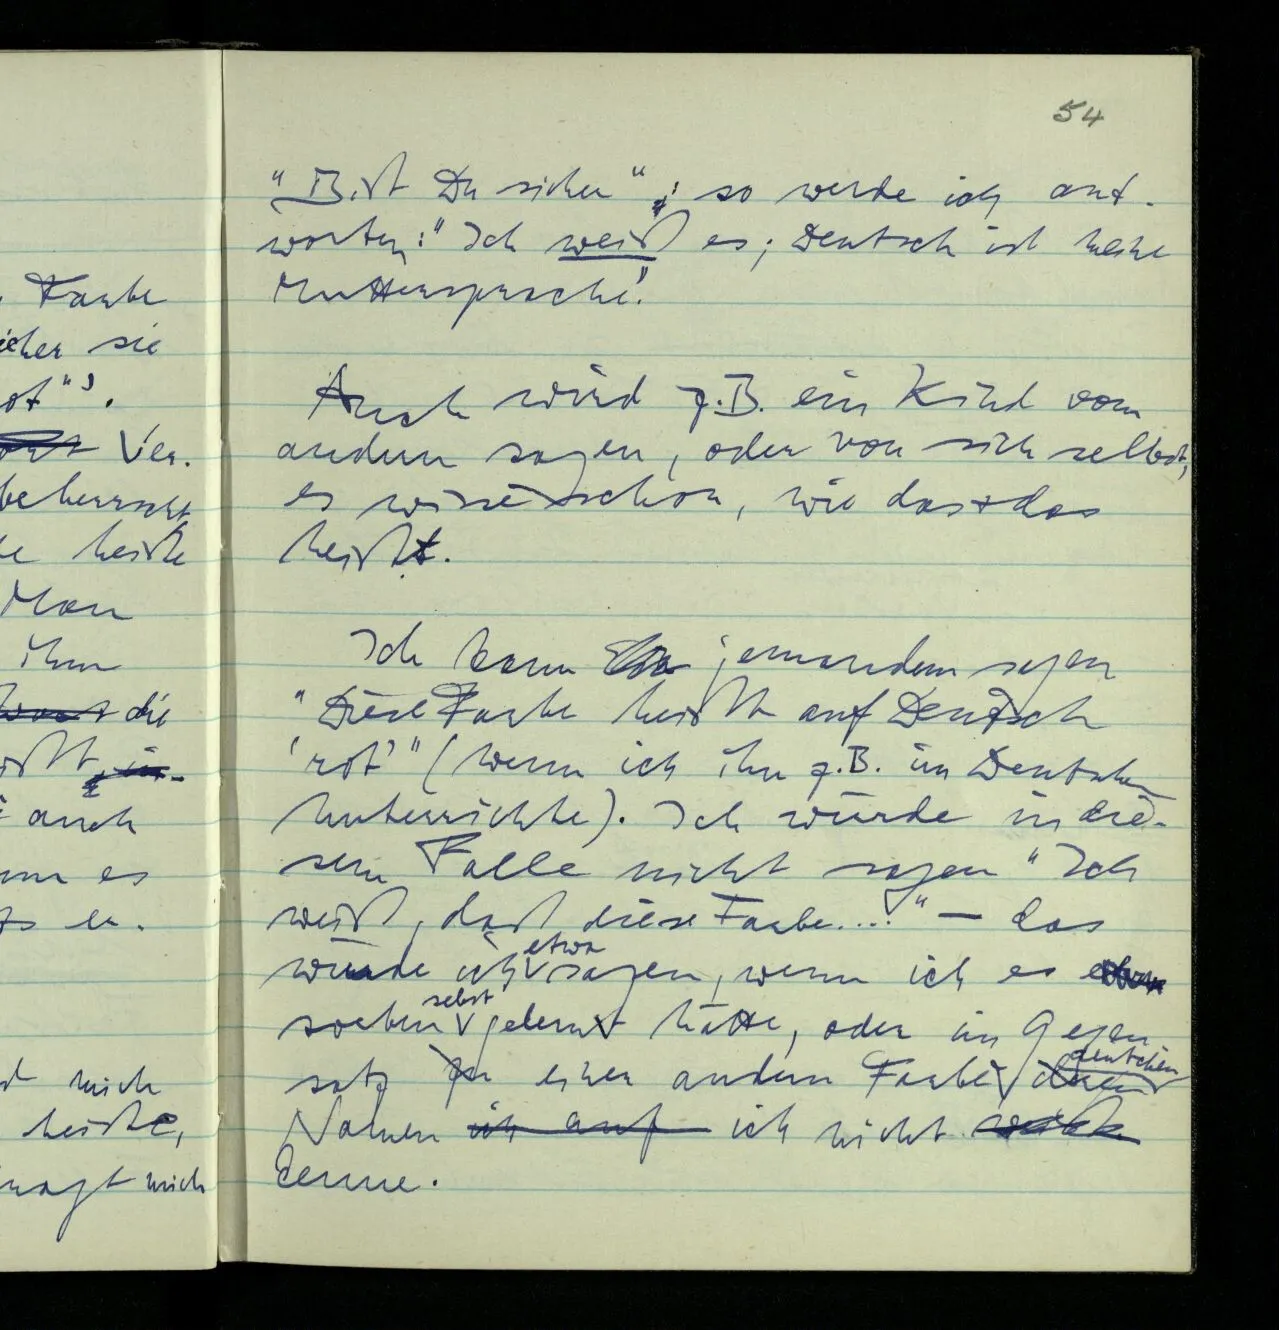 54
"Bist Du sicher"; so werde ich ant-
worten: "Ich weiß es; Deutsch ist meine
Muttersprache".
Auch wird z.B. ein Kind vom
andern sagen, oder von sich selbst,
es wisse schon, wie das + das
heißt.
Ich kann jemandem sagen
"Diese Farbe heißt auf Deutsch
'rot'" (wenn ich ihn z.B. im Deutschen
unterrichte). Ich würde in die-
sem Falle nicht sagen "Ich
weiß, daß diese Farbe...." – das
würde ich etwa sagen, wenn ich es
soeben selbst gelernt hätte, oder im Gegen
satz zu einer andern Farbe, deren deutschen
Namen ich nicht
kenne.
Farbe
sie
ot"'.
Ver-
beherrscht
heiße
Man
ihm
die
auch
es
er.
mich
heiße,
fragt mich